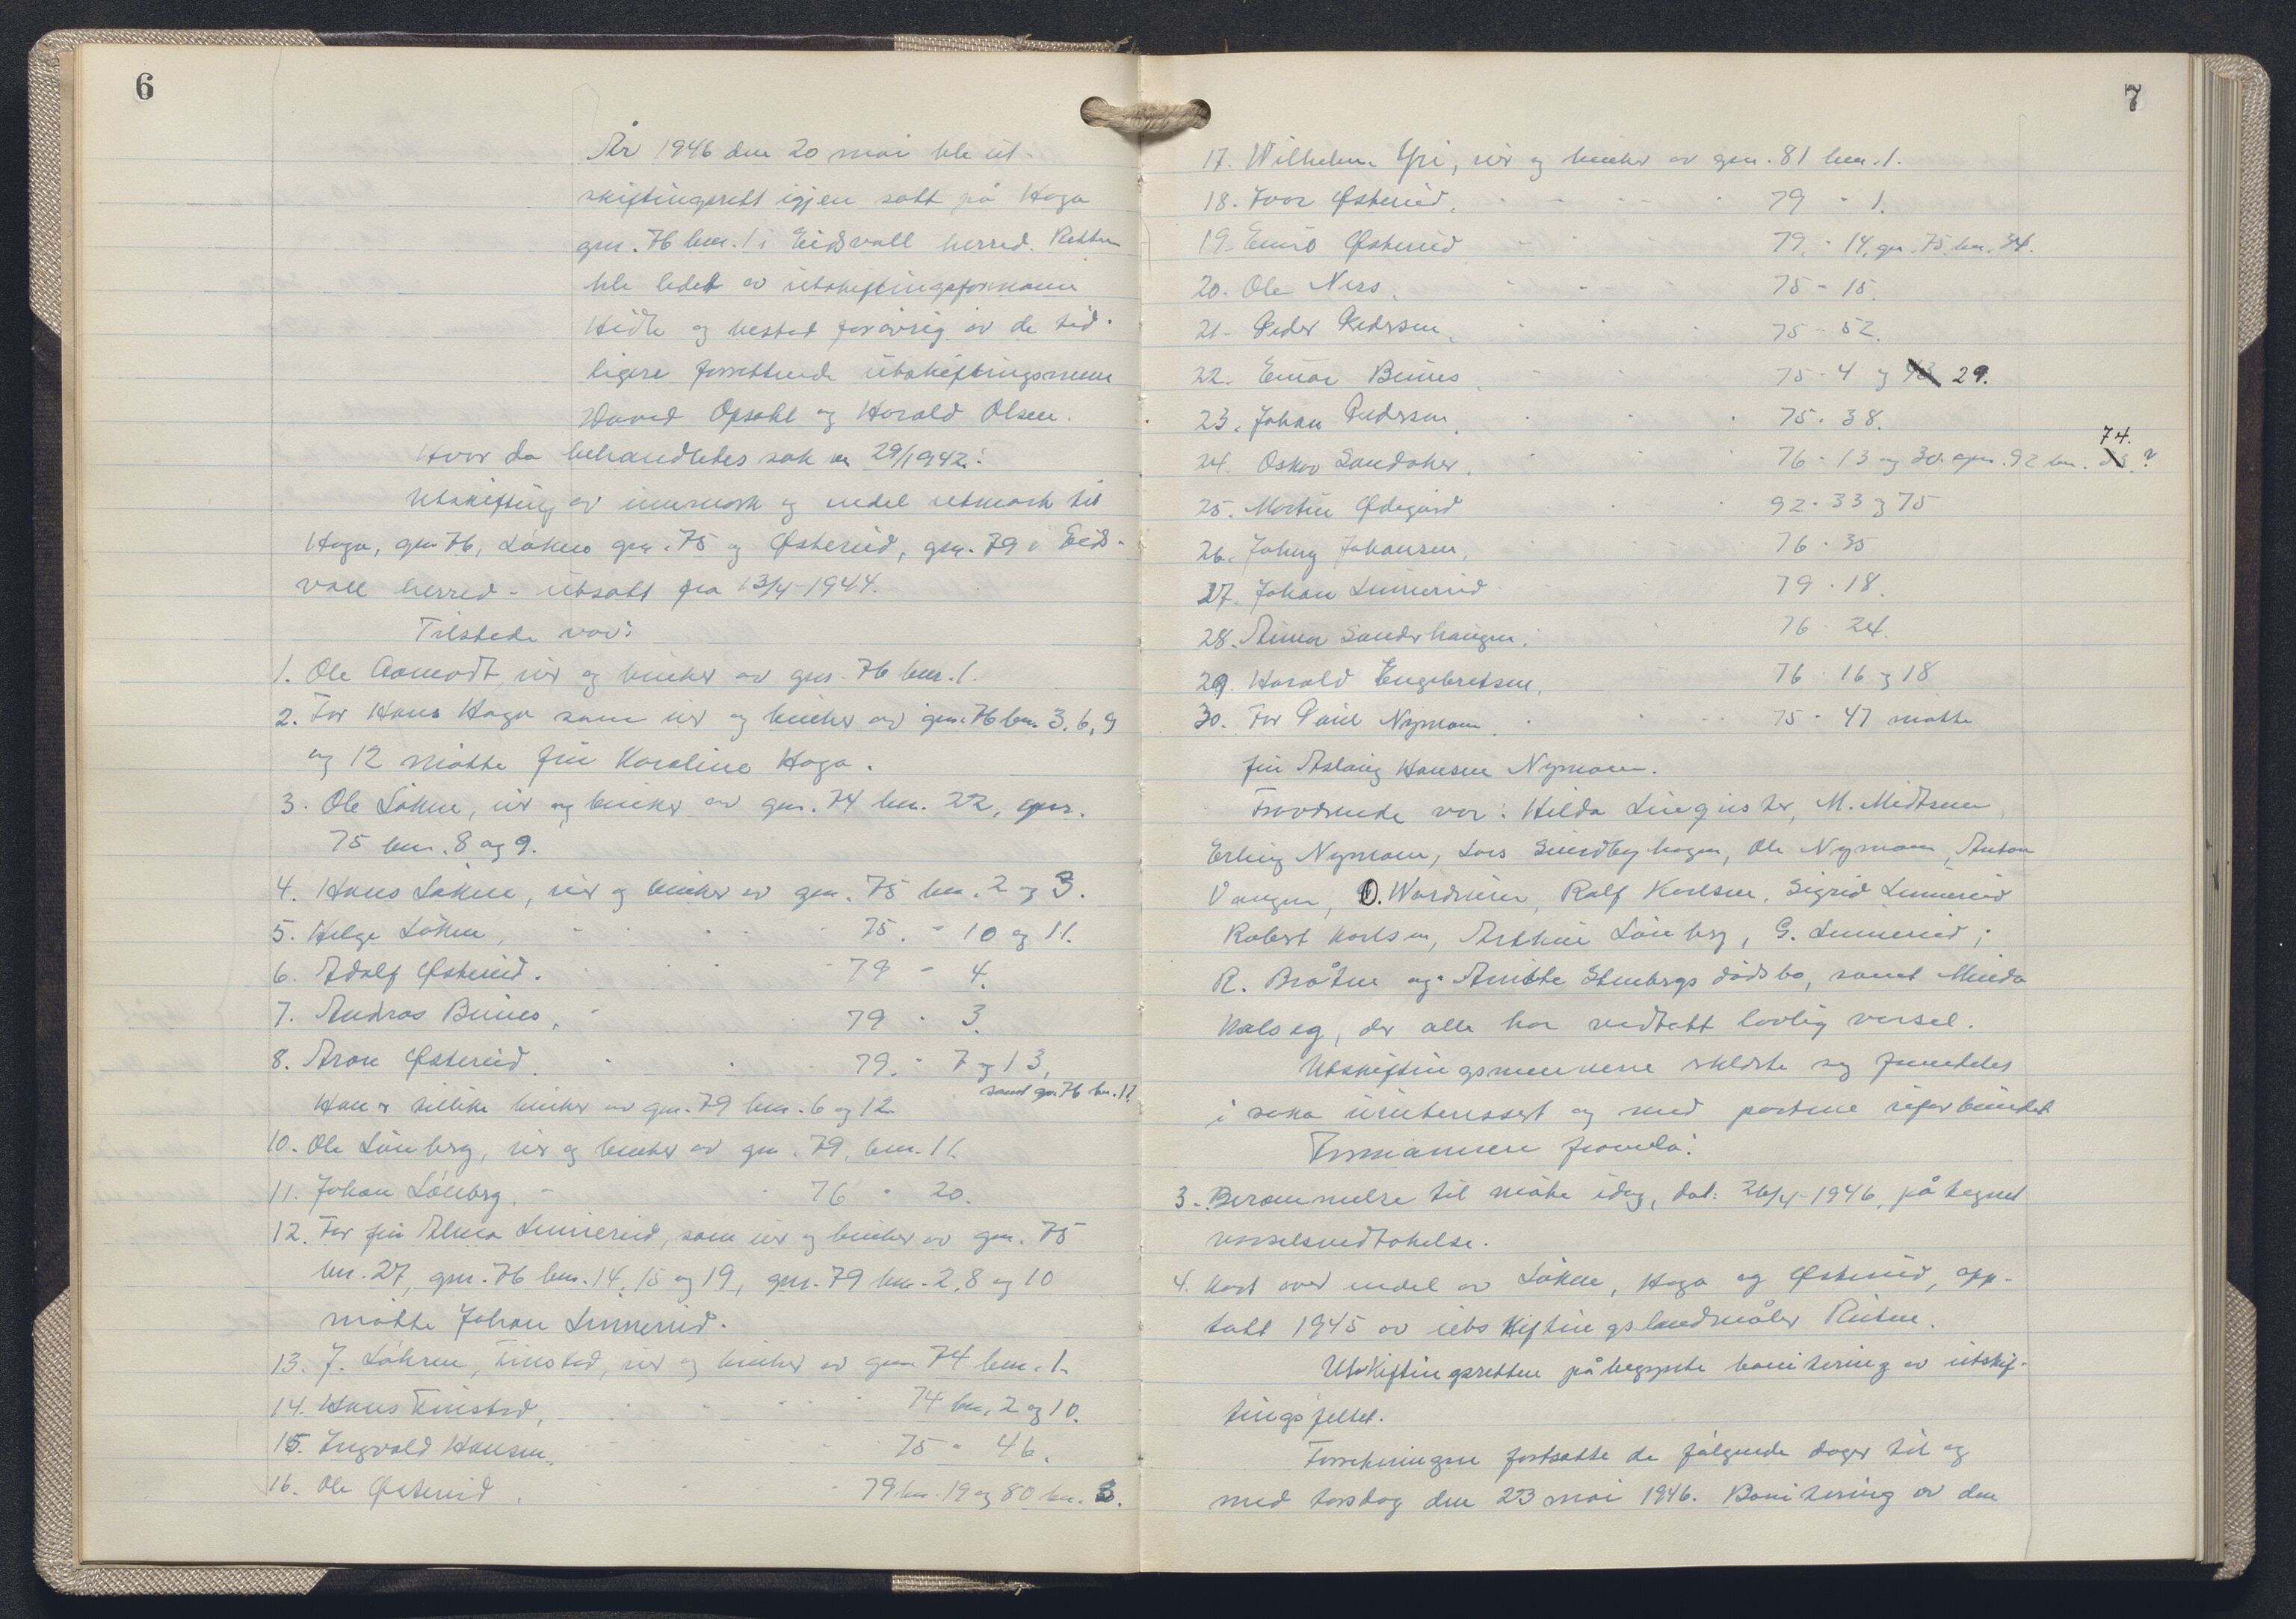 6
År 1946 den 20 mai ble ut-
skiftingsrett igjen satt på Haga
gnr. 76 bnr. 1 i Eidsvoll herred. Retten
ble ledet av utskiftingsformann
og bestod forøvrig av de tid-
ligere forrettende utskiftingsmenn
Opsahl og Harald Olsen.
Hvor da behandledes sak nr 29/1942:
Utskifting av innmark og endel utmark til
Haga, gnr 76, Løkne gnr. 75 og Østerud, gnr. 79 i Eids-
voll herred - utsatt fra 13/4-1944.
Tilstede var:
1. Ole Aamodt, eier og bruker av gnr. 76 bnr. 1.
2. For Hans Haga som eier og bruker av gnr. 76 bnr. 3, 6, 9
og 12 møtte fru Karoline Haga.
3. Ole Løkne, eier og bruker av gnr. 74 bnr. 22, gnr.
75 bnr. 8 og 9.
4. Hans Løkne, eier og bruker av gnr. 75 bnr. 2 og 3.
5. Helge Løkne, 75. - 10 og 11.
6. Adolf Østerud. 79 - 4.
7. Andreas 79 - 3.
8. Aron Østerud. 79. - 7 og 13,
samt gnr. 76 bnr. 17
Han er tillike bruker av gnr. 79 bnr. 6 og 12.
10. Ole Lønberg, eier og bruker av gnr. 79, bnr. 11.
11. Johan Lønberg. - 76 - 20.
12. For fru Linnerud, som eier og bruker av gnr. 75
bnr. 27, gnr. 76 bnr. 14, 15 og 19, gnr. 79 bnr. 2, 8 og 10
møtte Johan Linnerud.
13. J. Finstad, eier og bruker av gnr 74 bnr. 1.
14. Hans Finstad, 74 bnr. 2 og 10.
15. Ingvald Hansen. 75 - 46.
16. Ole Østerud. 79 bnr. 19 og 80 bnr. 3.
7
17. Wilhelm eier og bruker av gnr. 81 bnr. 1.
18. Ivar Østerud. 79 - 1.
19. Østerud 79. - 14, gnr. 75 bnr. 34.
20. Ole 75 - 15.
21. Peder Pedersen. 75 - 52.
22. Einar 75 - 4 og 29.
23. Johan Pedersen. 75 - 38.
74.
24. Oskar Sandaker. 76 - 13 og 30. gnr. 92 bnr. ?
25. Martin Ødegård 92 - 33 og 75
26. Johny Johansen. 76 - 35
27. Johan Linnerud 79 - 18.
28. 76 - 24.
29. Harald Engebretsen. 76 - 16 og 18
30. For Paul Nyman. 75 - 47 møtte
fru Aslaug Hansen Nyman.
Fraværende var: Hilda M. Midtsem
Erling Nyman, Lars Sundbyhagen, Ole Nyman, Anton
Vangen, O. Rolf Karlsen, Sigrid Linnerud
Robert Karlsen, Arthur Lønberg, G. Linnerud,
R. Bråten og dødsbo, samt
der alle har vedtatt lovlig varsel.
Utskiftingsmennene erklærte seg fremdeles
i saka uinteressert og med partene uforbundet
Formannen framla:
3. Berammelse til møte idag, dat: 26/4-1946, påtegnet
varselsvedtakelse.
4. Kart over endel av Løkne, Haga og Østerud, opp-
tatt 1945 av utskiftingslandmåler
Utskiftingsretten påbegynte bonitering av utskif-
tingsfeltet.
Forretningen fortsatte de følgende dager til og
med torsdag den 23 mai 1946. Bonitering av den